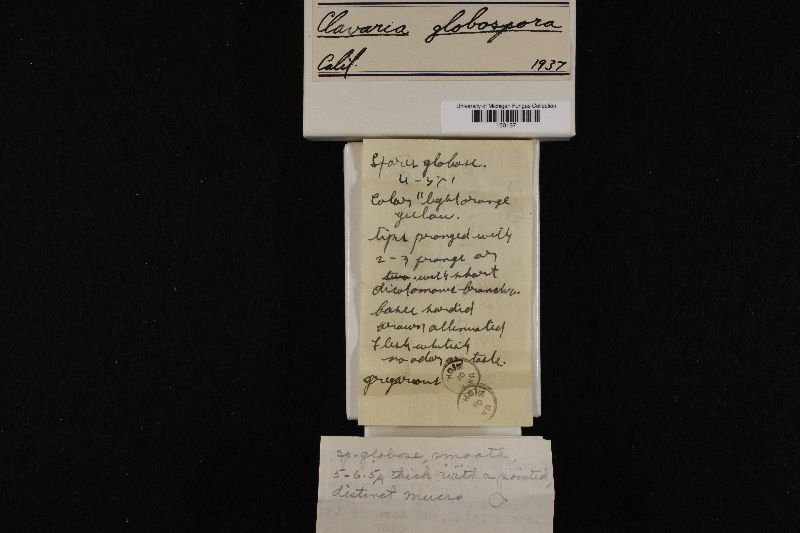 Clavaria globospora
Calif. 1937
University of Michigan Fungus Collection
Spores globose.
4-5
Color "light orange
tips pronged with
2-3 prongs or
two with short
dicotomous branches.
bases
attenuated
flesh whitish
no odor or taste.
gregarious
sp. globose, smooth,
5-6.5µ thick with a pointed,
distinct mucro